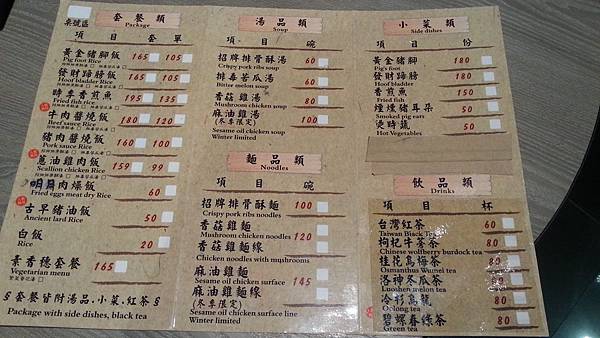 桌號區
套餐類
Package
項目 套 單
黃金豬腳飯 165 105
Pig foot Rice
發財蹄膀飯 165 105
Hoof bladder Rice
時季香煎魚 195 135
Fried fish rice
牛肉醬燒飯 180 120
Beef sauce Rice
豬肉醬燒飯 160 100
Pork sauce Rice
蔥油雞肉飯 159 99
Scallion chicken Rice
明月肉燥飯 60
Fried eggs meat dry Rice
古早豬油飯 50
Ancient lard Rice
白飯 20
Rice
素香穗套餐 165
Vegetarian menu
§套餐皆附湯品.小菜.紅茶§
Package with side dishes, black tea
湯品類
Soup
項目 碗
招牌排骨酥湯 60
Crispy pork ribs soup
排毒苦瓜湯 60
Bitter melon soup
香菇雞湯 80
Mushroom chicken soup
麻油雞湯 100
(冬季限定)
Sesame oil chicken soup
Winter limited
麵品類
Noodles
項目 碗
招牌排骨酥麵 100
Crispy pork ribs noodles
香菇雞麵
Mushroom chicken noodles 120
香菇雞麵線
Chicken noodles with mushrooms
麻油雞麵
Sesame oil chicken surface 145
麻油雞麵線
(冬季限定)
Sesame oil chicken surface line
Winter limited
小菜類
Side dishes
項目 份
黃金豬腳 180
Pig's foot
發財蹄膀 180
Hoof bladder
香煎魚 150
Fried fish
煙燻豬耳朵 50
Smoked pig ears
燙時蔬 50
Hot Vegetables
飲品類
Drinks
項目 杯
台灣紅茶 60
Taiwan Black Tea
枸杞牛蒡茶 80
Chinese wolfberry burdock tea
桂花烏梅茶 80
Osmanthus Wumei tea
洛神冬瓜茶 80
Luoshen melon tea
冷杉烏龍 80
Oolong tea
碧螺春綠茶 80
Green tea